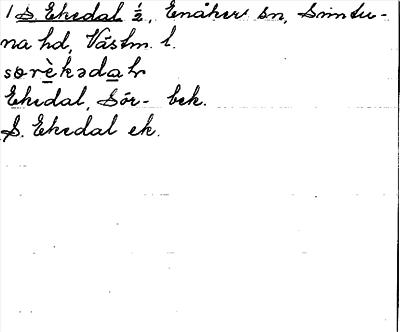 1 S Ekedal ½, Enåker sn, Simtu-
na hd, Västm. l.
sørèkədal
Ekedal, Sör- bek.
S. Ekedal ek.